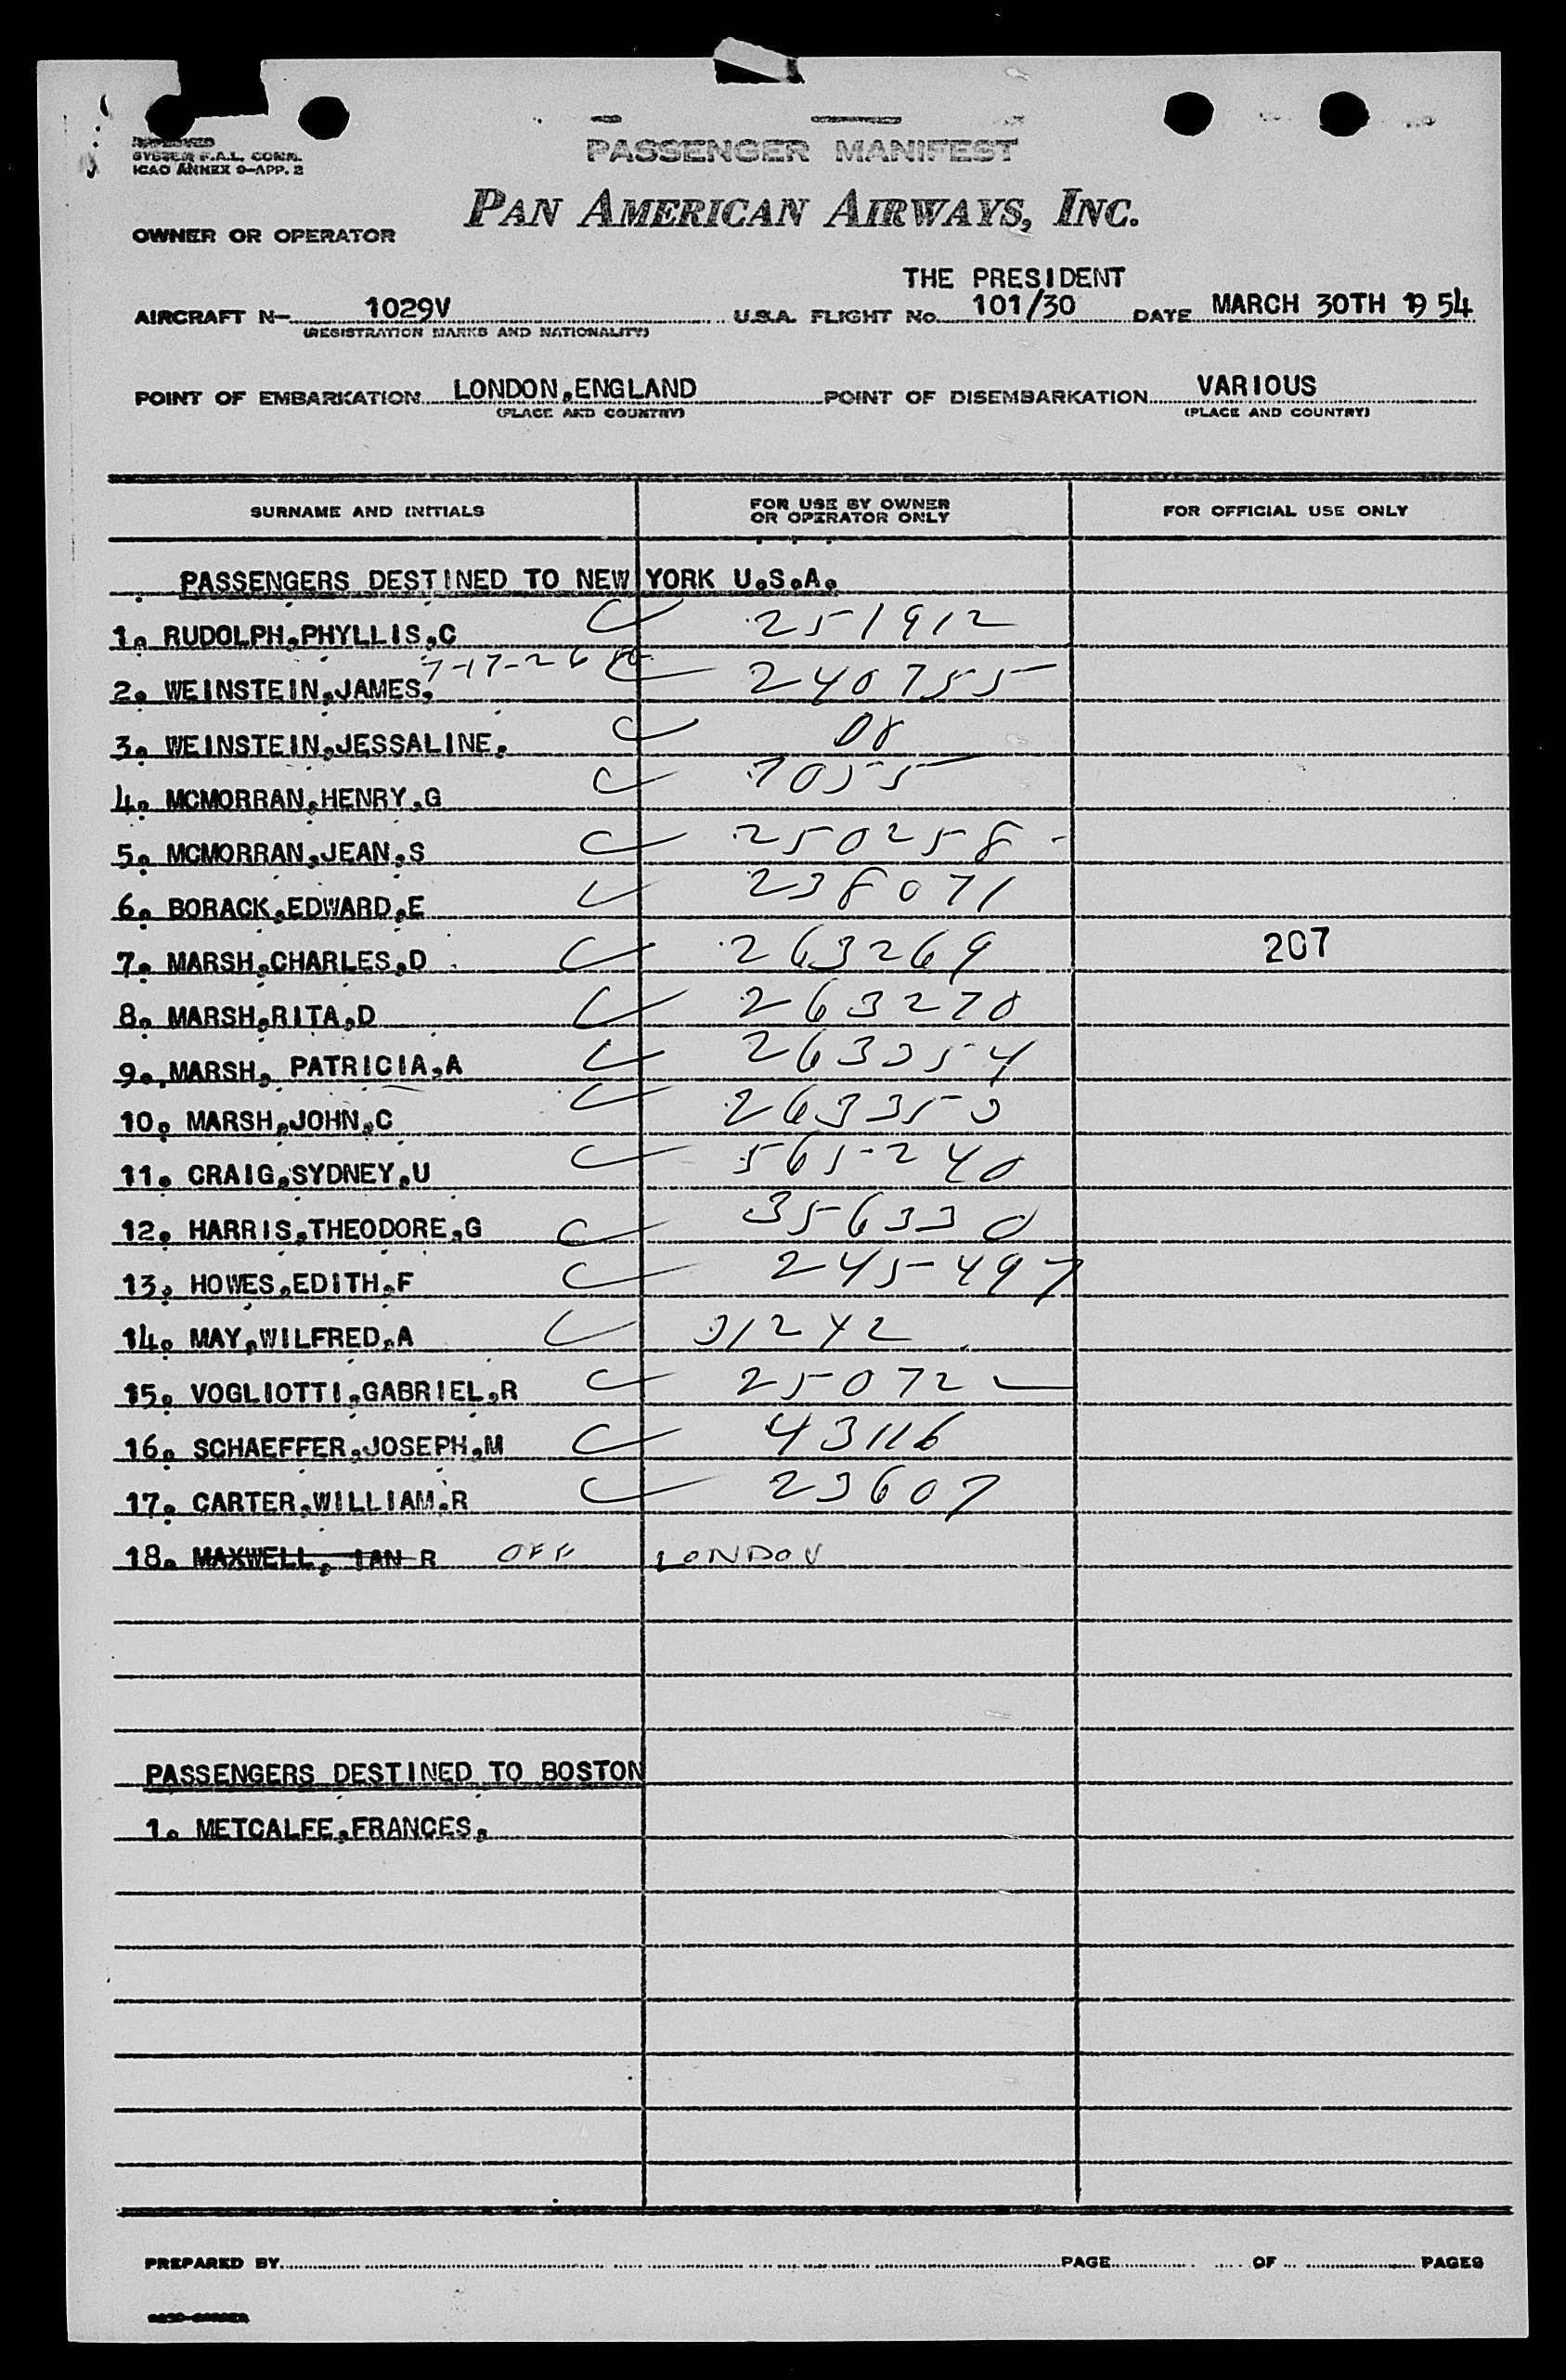 SYSTEM F.A.L. COMM.
ICAO ANNEX 9-APP. 2
PASSENGER MANIFEST
PAN AMERICAN AIRWAYS, INC.
OWNER OR OPERATOR
THE PRESIDENT
AIRCRAFT N- 1029V U.S.A. FLIGHT No. 101/30 DATE MARCH 30TH 19 54
(REGISTRATION MARKS AND NATIONALITY)
POINT OF EMBARKATION LONDON,ENGLAND POINT OF DISEMBARKATION VARIOUS
(PLACE AND COUNTRY) (PLACE AND COUNTRY)
SURNAME AND INITIALS FOR USE BY OWNER OR OPERATOR ONLY FOR OFFICIAL USE ONLY
PASSENGERS DESTINED TO NEW YORK U.S.A.
1. RUDOLPH,PHYLLIS,C 251912
7-17-26
2. WEINSTEIN,JAMES, 240755
3. WEINSTEIN,JESSALINE. 08
4. MCMORRAN,HENRY,G 7055
5. MCMORRAN,JEAN,S 250258
6. BORACK,EDWARD,E 238071
7. MARSH,CHARLES,D 263269 207
8. MARSH,RITA,D 263270
9. MARSH, PATRICIA,A 263354
10. MARSH,JOHN,C 263353
11. CRAIG,SYDNEY,U 565240
12. HARRIS,THEODORE,G 356330
13. HOWES,EDITH,F 245497
14. MAY,WILFRED,A 31242
15. VOGLIOTTI,GABRIEL,R 25072
16. SCHAEFFER,JOSEPH,M 43116
17. CARTER,WILLIAM,R 23607
18. MAXWELL, IAN R OFF LONDON
PASSENGERS DESTINED TO BOSTON
1. METCALFE,FRANCES,
PREPARED BY PAGE OF PAGES